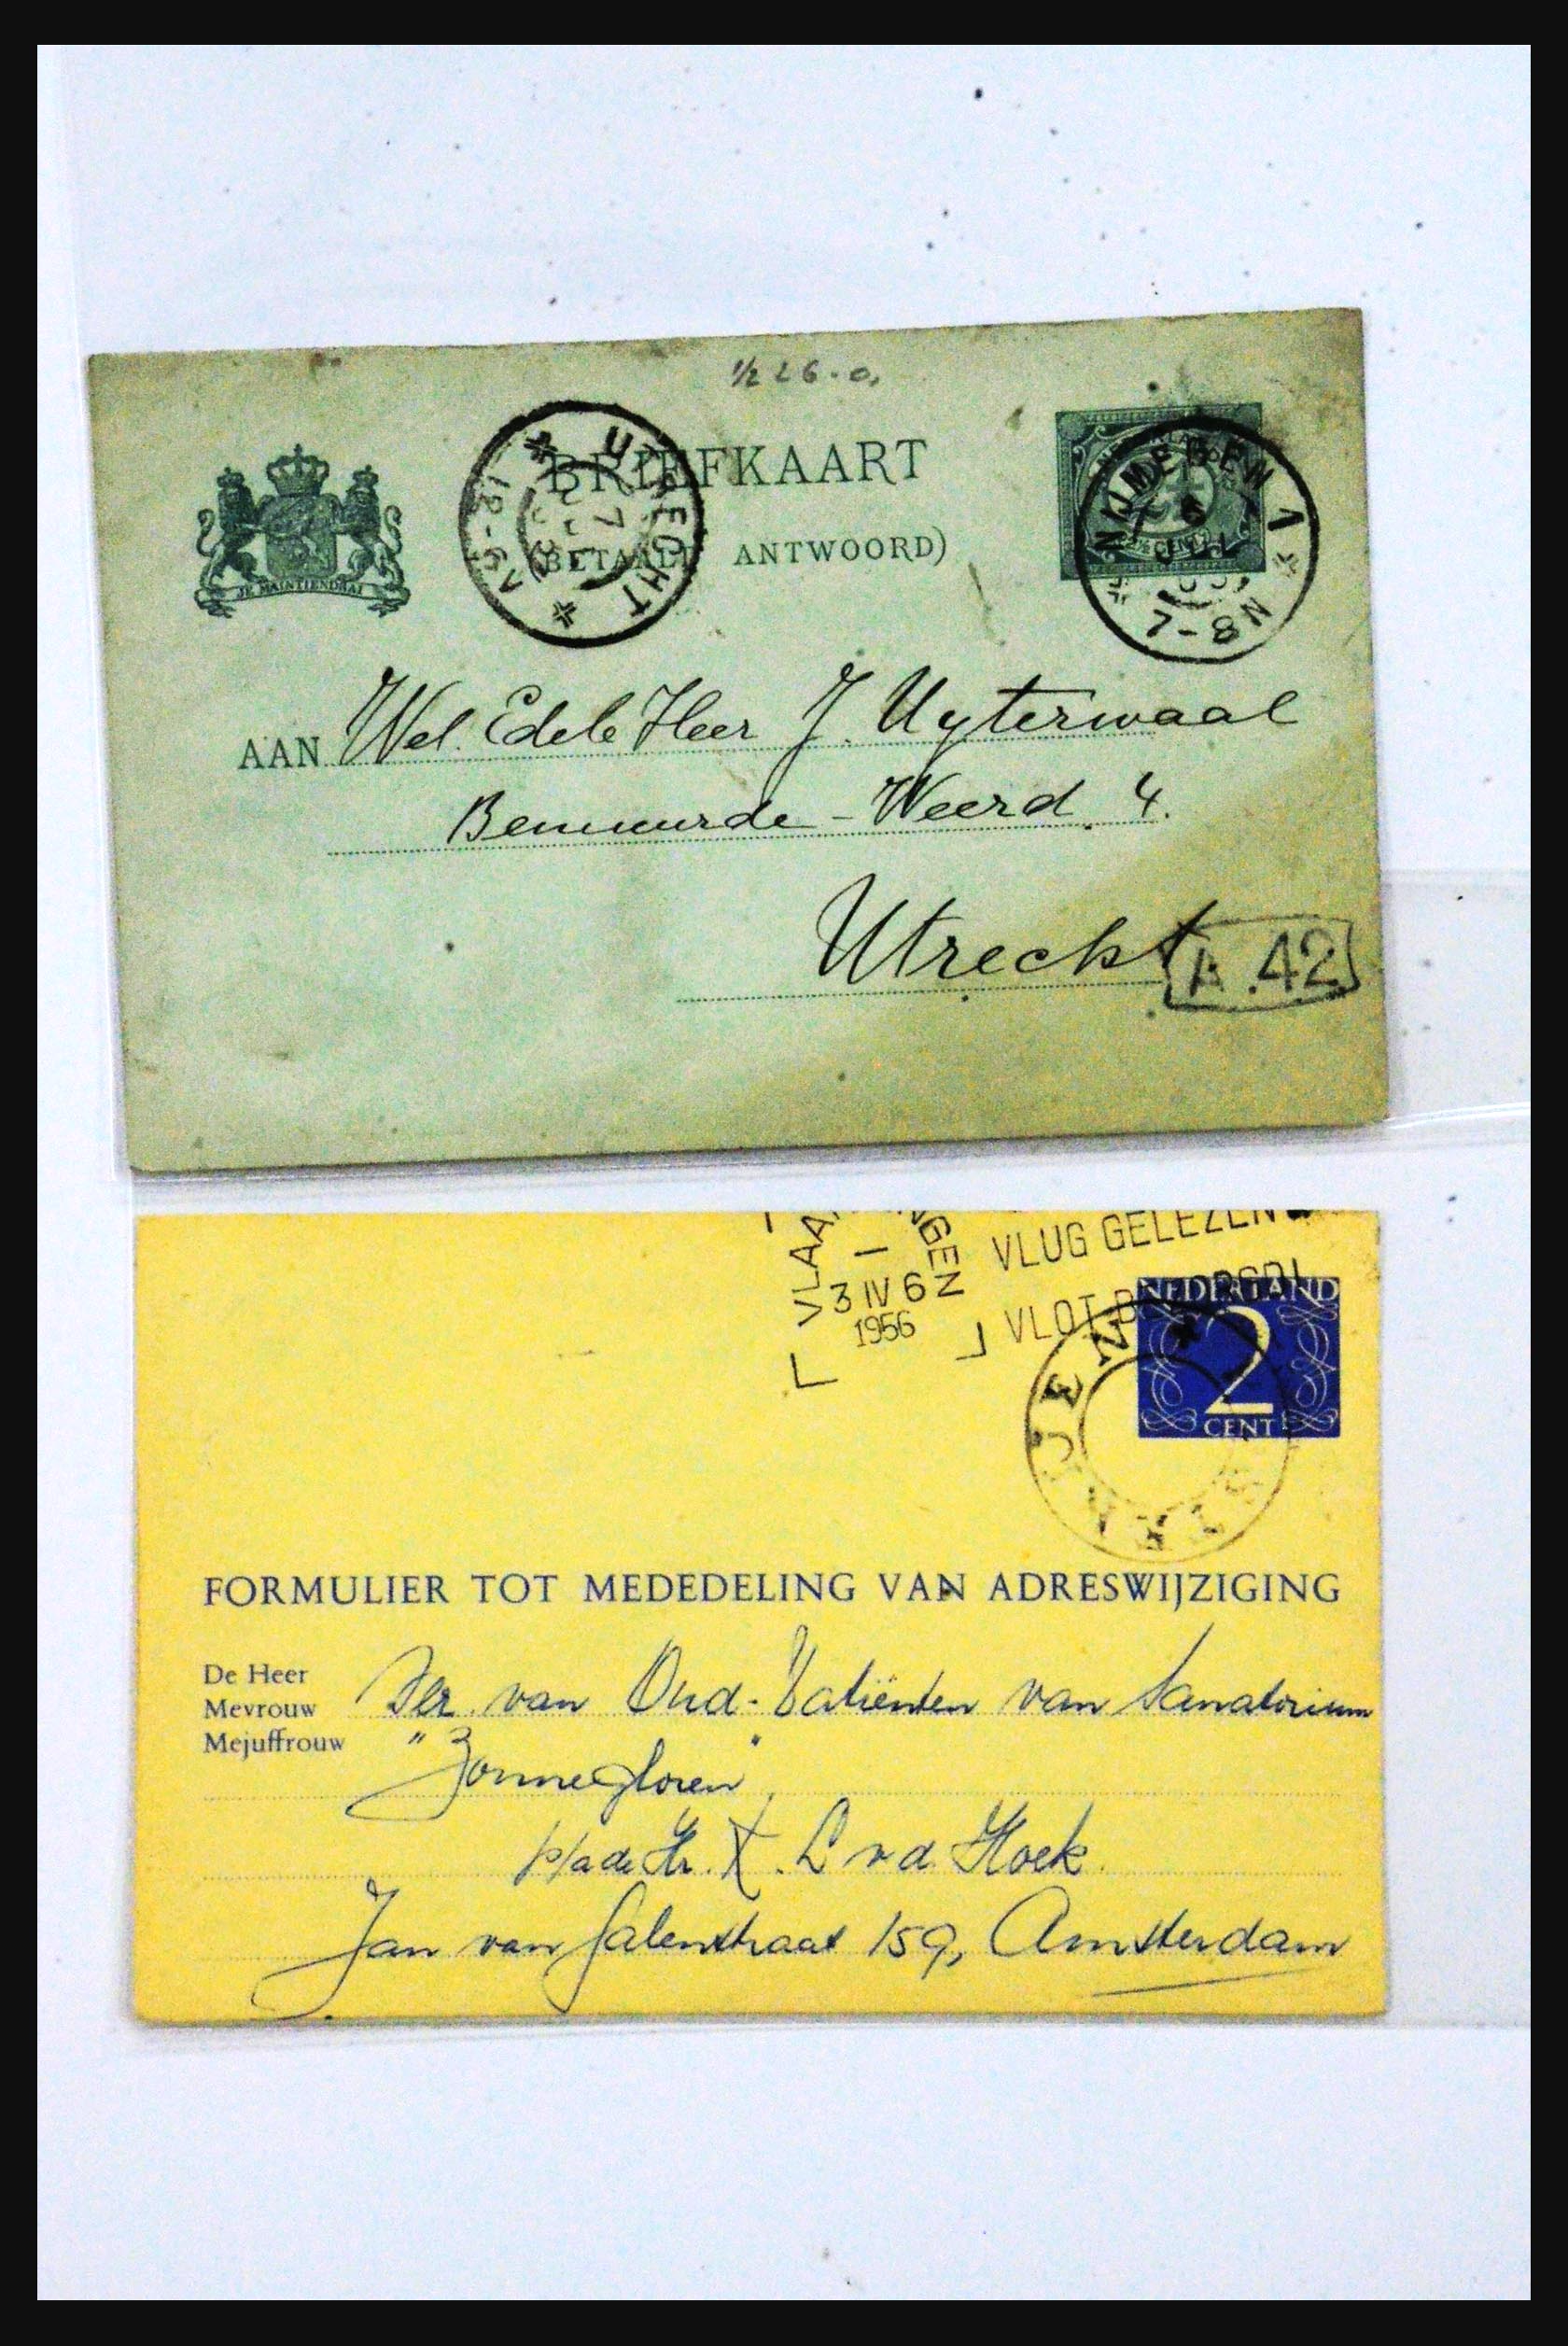 ½ 26.0,
BRIEFKAART
(BETAALD ANTWOORD)
JE MAINTIENDRAI
UTRECHT
7
NIJMEGEN 1
6
JUL
7-8N
AAN Wel. Edele Heer J. Uyterwaal
Weerd. 4.
Utrecht
A.42
VLUG GELEZEN
VLOT
3 IV 6
1956
NEDERLAND
2
CENT
FORMULIER TOT MEDEDELING VAN ADRESWIJZIGING
De Heer
Mevrouw
Mejuffrouw
Ver. van Oud-Patiënten van Sanatorium
"Zonnegloren"
p/a de Hr. L v d Hoek.
Jan van Galenstraat 159, Amsterdam